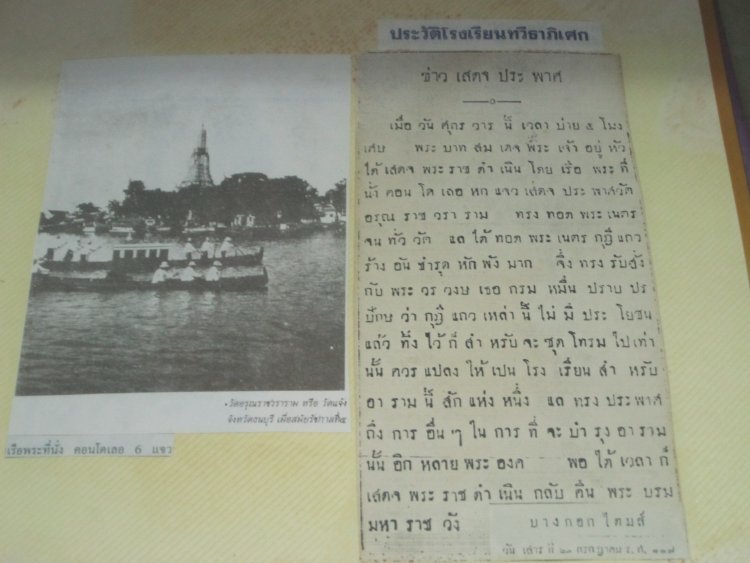 ประวัติโรงเรียนทวีธาภิเศก
ข่าว เสดจ ประ พาศ
เมื่อ วัน ศุกร วาร นี้ เวลา บ่าย ๕ โมง
เศษ พระ บาท สม เดจ พระ เจ้า อยู่ หัว
ได้ เสดจ พระ ราช ดำ เนิน โดย เรือ พระ ที่
นั่ง คอน โด เลอ หก แจว เสดจ ประ พาศวัด
อรุณ ราช วรา ราม ทรง ทอด พระ เนตร
จน ทั่ว วัด แล ได้ ทอด พระ เนตร กุฎี แถว
ร้าง อัน ชำรุด หัก พัง มาก จึ่ง ทรง รับสั่ง
กับ พระ วร วงษ เธอ กรม หมื่น ปราบ ปร
ปักษ ว่า กุฎี แถว เหล่า นี้ ไม่ มี ประ โยชน
แล้ว ทิ้ง ไว้ ก็ สำ หรับ จะ ชุด โทรม ไป เท่า
นั้น ควร แปลง ให้ เปน โรง เรียน สำ หรับ
อา ราม นี้ สัก แห่ง หนึ่ง แล ทรง ประพาศ
ถึง การ อื่น ๆ ใน การ ที่ จะ บำ รุง อาราม
นั้น อิก หลาย พระ องค พอ ได้ เวลา ก็
เสดจ พระ ราช ดำ เนิน กลับ คืน พระ บรม
มหา ราช วัง
บางกอก ไตมส์
วัน เสาร์ ที่ ๒๐ กรกฎาคม ร.ศ. ๑๑๗
• วัดอรุณราชวราราม หรือ วัดแจ้ง
จังหวัดธนบุรี เมื่อสมัยรัชกาลที่๕
เรือพระที่นั่ง คอนโดเลอ 6 แจว